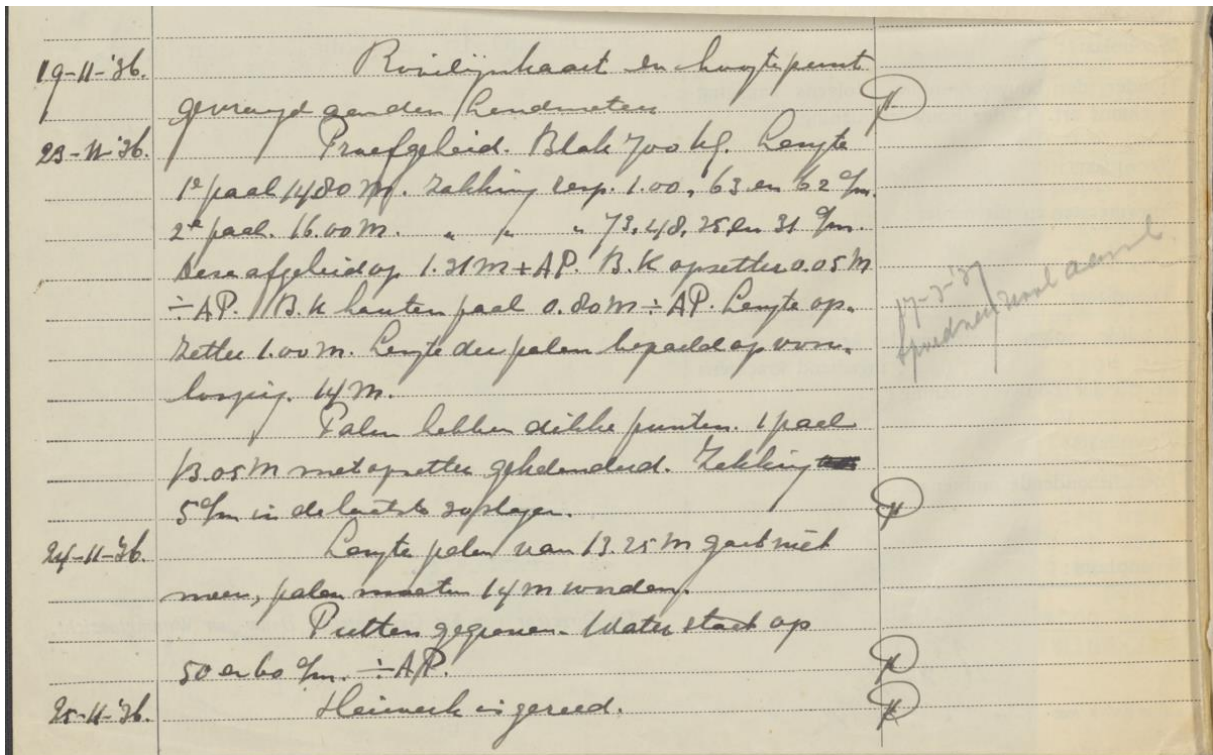 19-11-'36. Rooilijnkaart en hoogtepunt
gevraagd aan den Landmeter.
23-11-'36. Proefgeheid. Blok 700 kg. Lengte
1e paal 14,80 M. Zakking resp. 1.00, 63 en 62 c/m.
2e paal. 16.00 M. " " " 73, 48, 25, en 31 c/m.
Deze afgeheid op 1.21 M + AP. B.K opzetter 0.05 M
÷ AP. B.K houten paal 0.80 M ÷ AP. Lengte op-
zetter 1.00 M. Lengte der palen bepaald op voor-
loopig. 14 M.
Palen hebben dikke punten. 1 paal
13.05 M met opzetter geheid. Zakking
5 c/m in de laatste slagen.
24-11-'36. Lengte palen van 13.25 M gaat niet
meer, palen moeten 14 M worden.
Putten gegraven. Water staat op
50 en 60 c/m. ÷ AP.
25-11-'36. Heiwerk is gereed.
17-3-'37